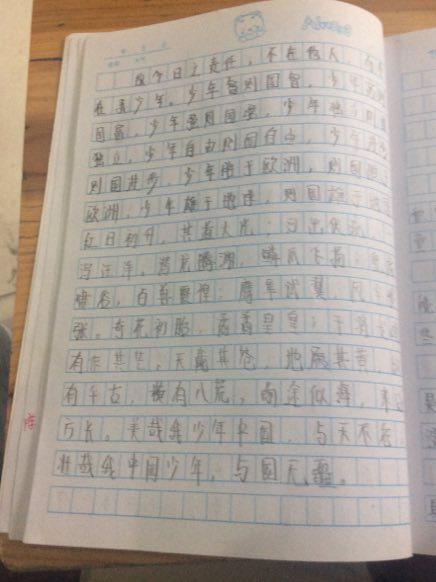 Always
故今日之责任，不在他人，而
在我少年。少年智则国智，少年富则
国富，少年强则国强，少年独立则国
独立，少年自由则国自由，少年进步
则国进步，少年胜于欧洲，则国胜于
欧洲，少年雄于地球，则国雄于地球
红日初升，其道大光；河出伏流，一
泻汪洋。潜龙腾渊，鳞爪飞扬；乳虎
啸谷，百兽震惶；鹰隼试翼，风尘吸
张。奇花初胎，矞矞皇皇；干将发硎
有作其芒。天戴其苍，地履其黄，纵
有千古，横有八荒，前途似海，来日
方长。美哉我少年中国，与天不老
壮哉我中国少年，与国无疆。